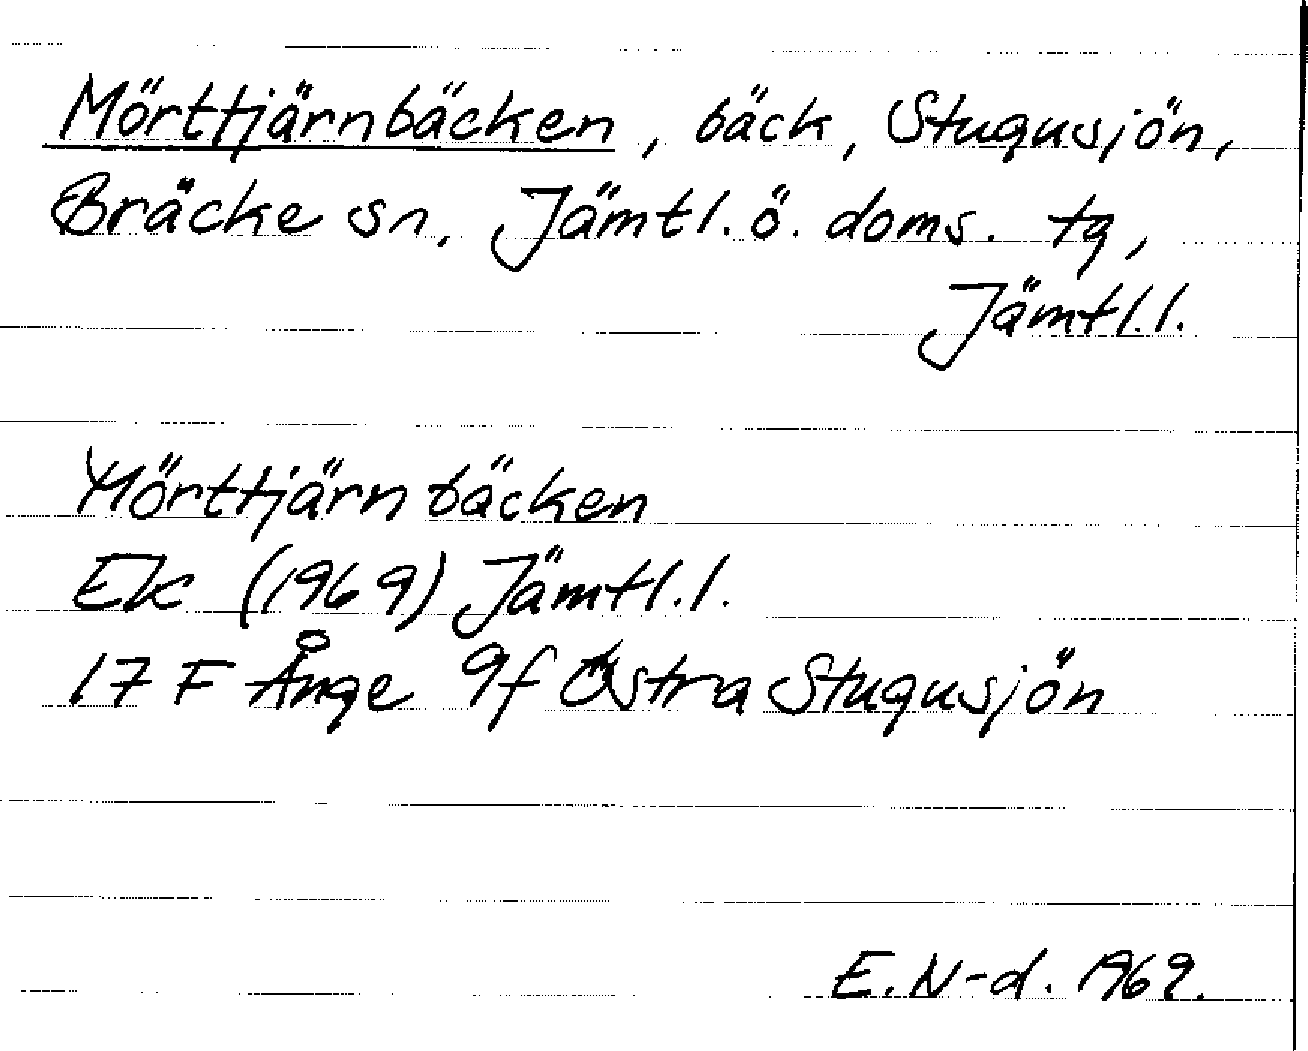 Mörttjärnbäcken, bäck, Stugusjön,
Bräcke sn, Jämtl. ö. doms. tg,
Jämtl. l.
Mörttjärnbäcken
Ek (1969) Jämtl. l.
17 F Ånge 9f Östra Stugusjön
E. N-d. 1969.